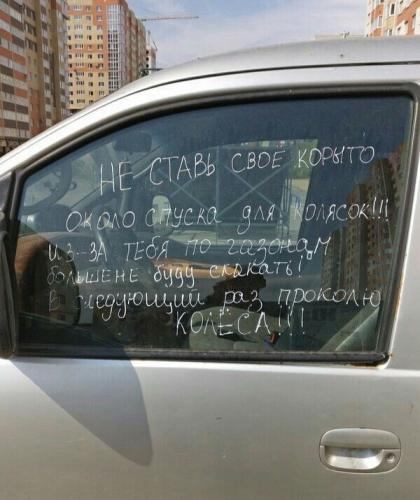 НЕ СТАВЬ СВОЕ КОРЫТО
ОКОЛО СПУСКА ДЛЯ КОЛЯСОК!!!
ИЗ-ЗА ТЕБЯ ПО ГАЗОНАМ
БОЛЬШЕ НЕ БУДУ СКАКАТЬ!
В СЛЕДУЮЩИЙ РАЗ ПРОКОЛЮ
КОЛЕСА!!!